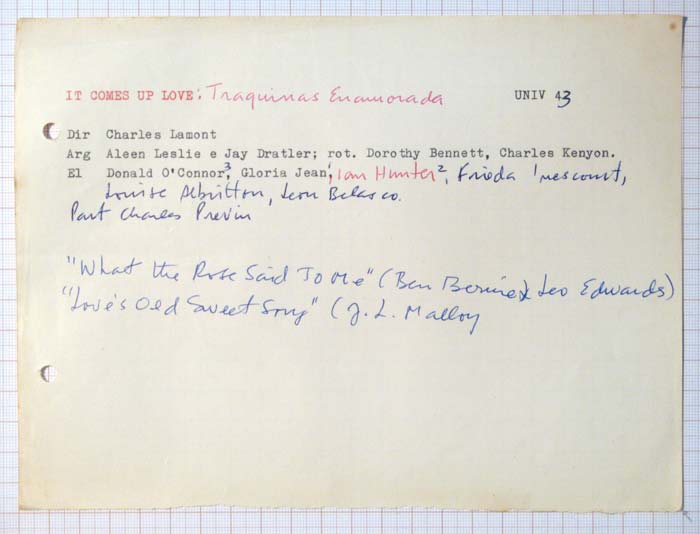 IT COMES UP LOVE: Traquinas Enamorada UNIV 43
Dir Charles Lamont
Arg Aleen Leslie e Jay Dratler; rot. Dorothy Bennett, Charles Kenyon.
El Donald O'Connor³, Gloria Jean¹, Ian Hunter², Frieda Inescourt,
Louise Albritton, Leon Belasco.
Part Charles Previn
"What the Rose Said To Me" (Ben Bernie & Leo Edwards)
"Love's Old Sweet Song" (J. L. Malloy